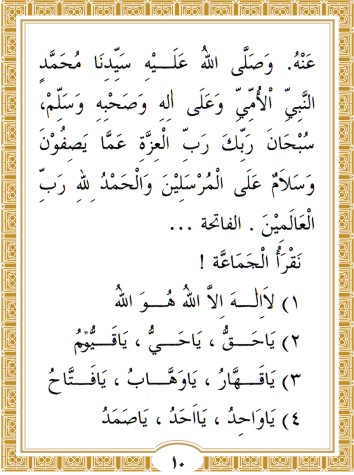 عَنْهُ. وَصَلَّى اللهُ عَلَـــيْهِ سَيِّدِنَا مُحَمَّدٍ
النَّبِيِّ اْلأُمِّيِّ وَعَلَى اٰلِهِ وَصَحْبِهِ وَسَلِّمْ،
سُبْحَانَ رَبِّكَ رَبِّ الْعِزَّةِ عَمَّا يَصِفُوْنَ
وَسَلاَمٌ عَلَى الْمُرْسَلِيْنَ وَالْحَمْدُ لِلهِ رَبِّ
الْعَالَمِيْنَ . الفاتحة ...
نَقْرَأُ الْجَمَاعَّة !
١) لاَاِلٰـــهَ اِلاَّ اللهُ هُـــوَ اللهُ
٢) يَاحَـــقُّ ، يَاحَـــيُّ ، يَاقَـــيُّوْمُ
٣) يَاقَـــهَّارُ ، يَاوَهَّـــابُ ، يَافَـــتَّاحُ
٤) يَاوَاحِدُ ، يَااَحَدُ ، يَاصَمَدُ
١٠